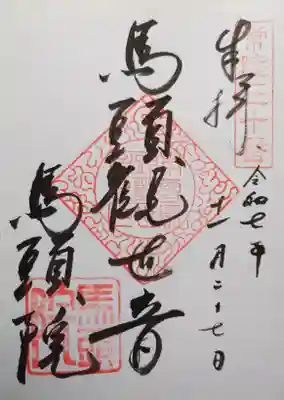 奉拝
令和七年
十一月二十七日
馬頭觀世音
馬頭院
馬頭
院印